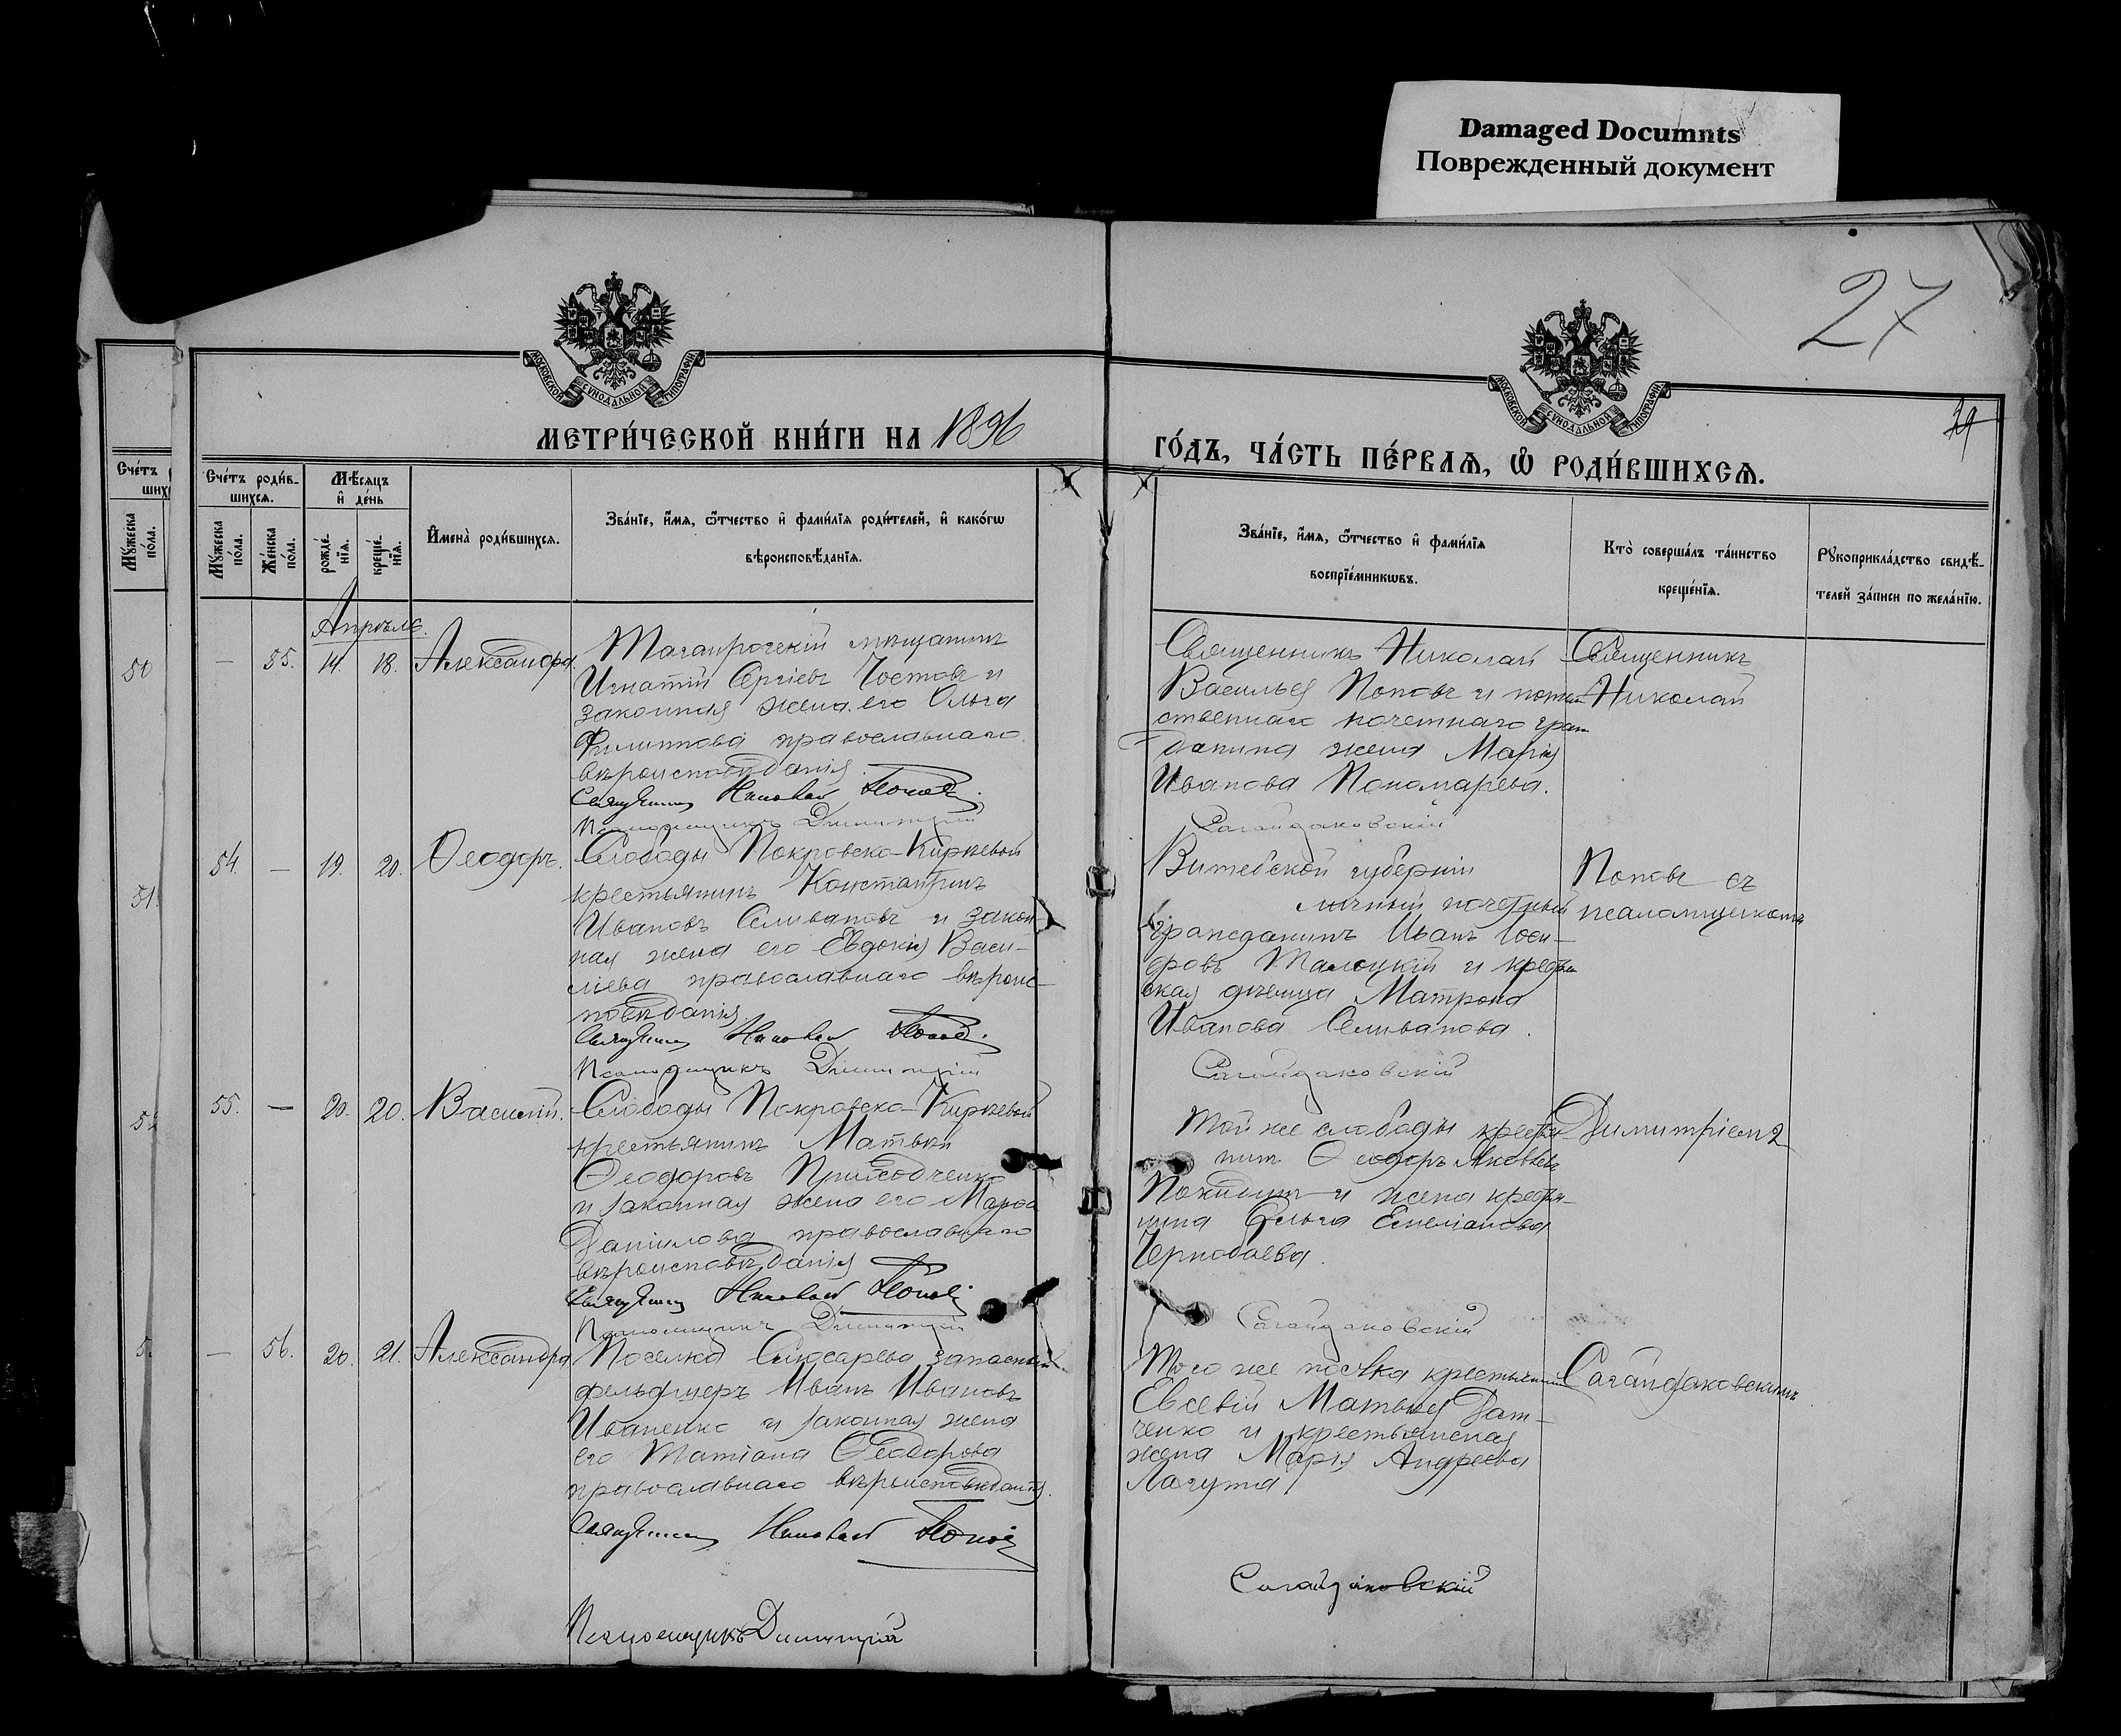 Damaged Documnts
Поврежденный документ
27
МЕТРИ́ЧЕСКОЙ КНИ́ГИ НА 1896
ГО́ДЪ, ЧА́СТЬ ПЕ́РВАѦ, Ѡ҆ РОДИ́ВШИХСѦ.
Сче́тъ роди́в-
шихсѧ.
Мꙋ́жеска по́ла.
Же́нска по́ла.
Мѣ́сѧцъ
и҆ де́нь
рожде́-
нїѧ.
креще́-
нїѧ.
И҆мена̀ роди́вшихсѧ.
Зва́нїе, и҆́мѧ, ѻ҆́тчество и҆ фами́лїѧ роди́телей, и҆ како́гѡ
вѣроисповѣ́данїѧ.
Зва́нїе, и҆́мѧ, ѻ҆́тчество и҆ фами́лїѧ
воспрїе́мникѡвъ.
Кто̀ соверша́лъ та́инство
креще́нїѧ.
Рꙋкоприкла́дство свидѣ́-
телей за́писи по жела́нїю.
Апрѣль.
— 55. 14. 18. Александра.
Таганрогскій мѣщанинъ
Игнатій Сергіевъ и
законная жена его Ольга
Филиппова православнаго
вѣроисповѣданія.
Священникъ Николай Поповъ.
Псаломщикъ Димитрій
Священникъ Николай
Васильевъ Поповъ и потом
ственнаго почетнаго граж
данина жена Марія
Иванова Пономарева.
Сагайдаковскій
Священникъ
Николай
54. — 19. 20. Ѳеодоръ.
Слободы Покровско-Кирѣевой
крестьянинъ Константинъ
Ивановъ Селивановъ и закон
ная жена его Евдокія Васи-
ліева православнаго вѣроис-
повѣданія.
Священникъ Николай Поповъ.
Псаломщикъ Димитрій
Витебской губерніи
личный почетный
гражданинъ Иванъ
и крестьян
ская дѣвица Матрона
Иванова Селиванова.
Сагайдаковскій
Поповъ съ
псаломщикомъ
55. — 20. 20. Василій.
Слободы Покровско-Кирѣевой
крестьянинъ Матвѣй
Ѳеодоровъ Приходченко
и законная жена его Марѳа
Даніилова православнаго
вѣроисповѣданія
Священникъ Николай Поповъ
Псаломщикъ Димитрій
Той же слободы крестья-
нинъ Ѳеодоръ Яковлевъ
и жена крестья-
нина Ольга Емеліанова
Чернобаева.
Сагайдаковскій
Димитріемъ
— 56. 20. 21. Александра
Поселка Слюсарева запасный
фельдшеръ Иванъ Ивановъ
Иваненко и законная жена
его Татіана Ѳеодорова
православнаго вѣроисповѣданія.
Священникъ Николай Поповъ
Псаломщикъ Димитрій
Того же посёлка крестьянинъ
Евсевій Матвѣевъ Дат-
ченко и крестьянская
жена Марія Андреева
Лагута
Сагайдаковскій
Сагайдаковскимъ